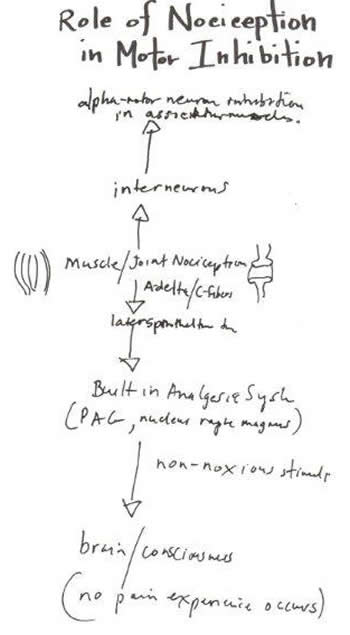 Role of Nociception
in Motor Inhibition
alpha-motor neuron inhibition
in
interneurons
Muscle/Joint Nociception
Adelta/C-fibers
Built in Analgesic
(PAG, nucleus raphe magnus)
non-noxious stimuli
brain/consciousness
(no pain experience occurs)